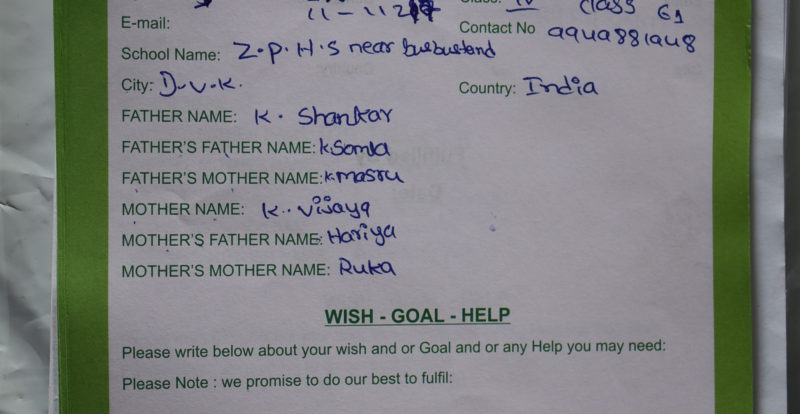 E-mail:
Class: IV Class 61
11-11214
Contact No 9948881948
School Name: Z.P.H.S near busbustend
City: D.V.K.
Country: India
FATHER NAME: K. Shankar
FATHER'S FATHER NAME: K Somla
FATHER'S MOTHER NAME: K masru
MOTHER NAME: K.. Vijaya
MOTHER'S FATHER NAME: Hariya
MOTHER'S MOTHER NAME: Ruka
WISH - GOAL - HELP
Please write below about your wish and or Goal and or any Help you may need:
Please Note : we promise to do our best to fulfil: